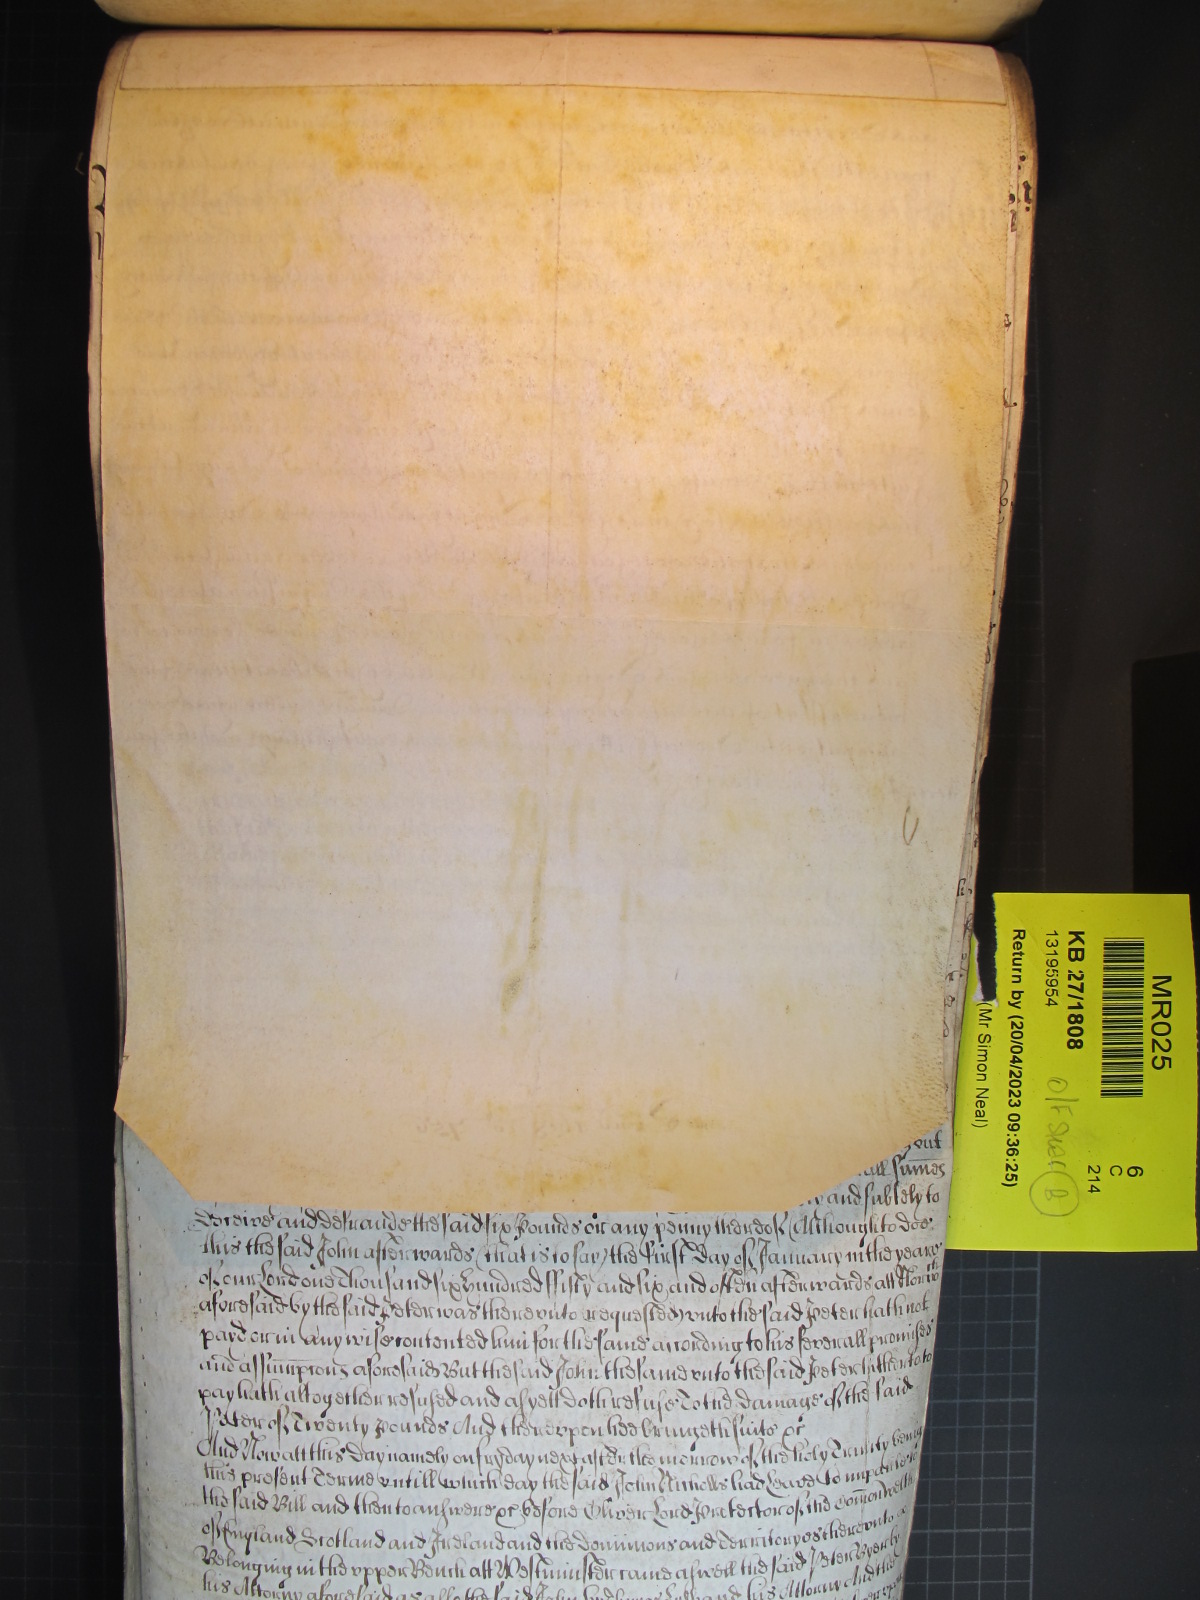 out
all sumes
and subtlely to
Deceive and defraude the said six Pounds or any penny thereof (Although to doe
this the said John afterwards (that is to say) the First Day of January in the yeare
of our Lord one Thousand six hundred fifty and six and often afterwards att
aforesaid by the said Peter was thereunto requested) unto the said Peter hath not
payd or in any wise contented him for the same according to his severall promises
and assumpcons aforesaid But the said John the same unto the said Peter hitherto to
pay hath altogether refused and as yett doth refuse To the damage of the said
Peter of Twenty pounds And thereupon hee bringeth suite &c
And Now att this day namely on fryday next after the morrow of the holy Trinity being
this present Terme untill which day the said John Nicholls had Leave To imparle to
the said Bill and then to answere &c before Oliver Lord Protector of the Commonwealth
of England Scotland and Ireland and the Dominions and Territoryes thereunto
Belonging in the upper Bench att Westminster came aswell the said Peter Byerly by
his Attorny aforesaid as alsoe the said John by his Attorny And the
MR025
6
C
214
KB 27/1808
13195954
Return by (20/04/2023 09:36:25)
(Mr Simon Neal)
O/F
B